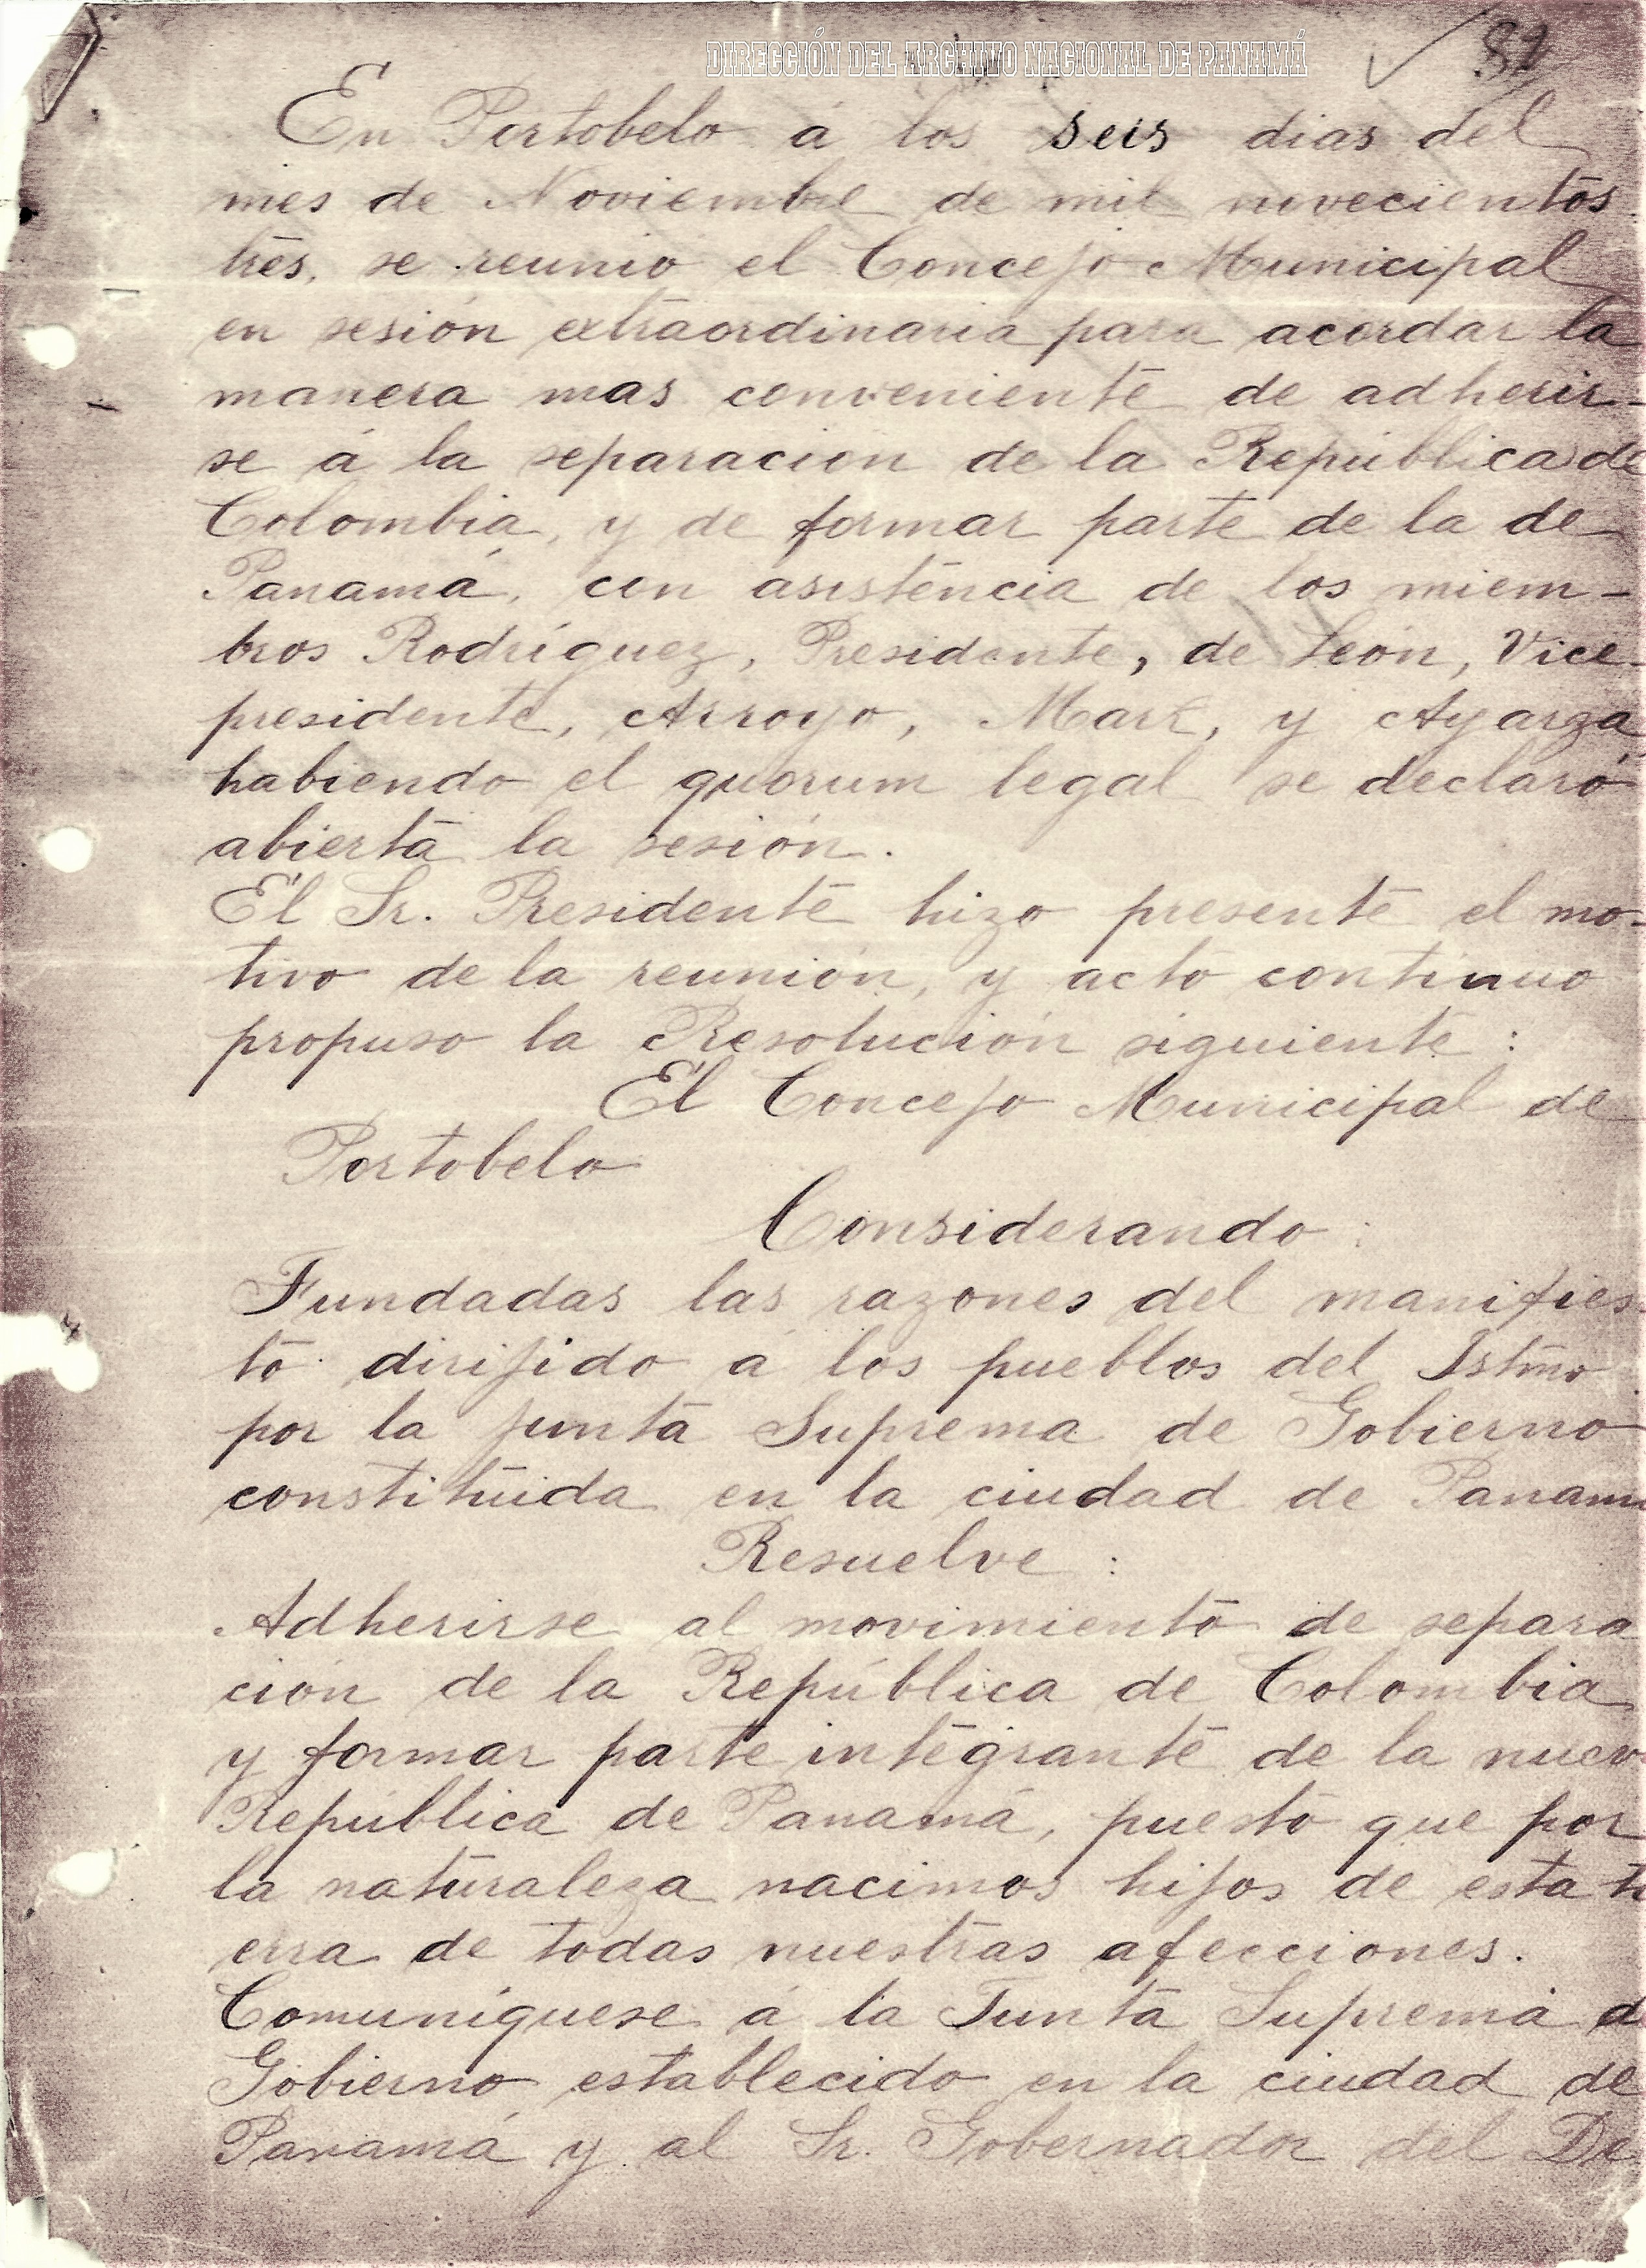 DIRECCIÓN DEL ARCHIVO NACIONAL DE PANAMÁ
En Portobelo á los seis dias del
mes de Noviembre de mil novecientos
tres, se reunio el Concejo Municipal
en sesión extraordinaria para acordar la
manera mas conveniente de adherir-
se á la separacion de la República de
Colombia, y de formar parte de la de
Panamá, con asistencia de los miem-
bros Rodríguez, Presidente, de León, Vice-
presidente, Arroyo, Mark, y Ayarza
habiendo el quorum legal se declaró
abierta la sesión.
El Sr. Presidente hizo presente el mo-
tivo de la reunión, y acto continuo
propuso la Resolución siguiente:
El Concejo Municipal de
Portobelo
Considerando:
Fundadas las razones del manifies
to dirijido a los pueblos del Istmo
por la junta Suprema de Gobierno
constituida en la ciudad de Panamá
Resuelve:
Adherirse al movimiento de separa
ción de la República de Colombia
y formar parte integrante de la nuev
República de Panamá, puesto que por
la naturaleza nacimos hijos de esta ti
erra de todas nuestras afecciones.
Comuníquese á la Junta Suprema d
Gobierno establecido en la ciudad de
Panamá y al Sr. Gobernador del De